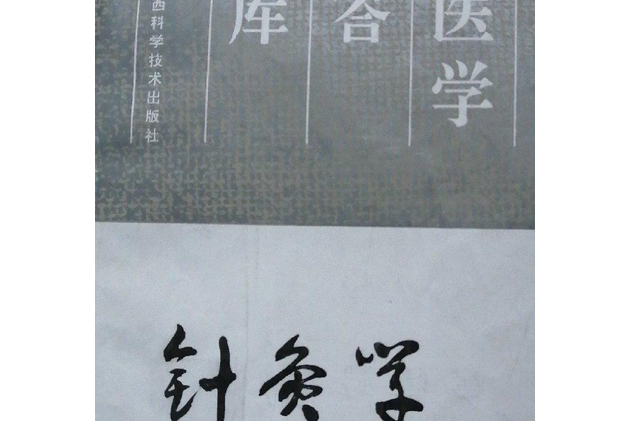 医学
答
库
西科学技术出版社
针灸学